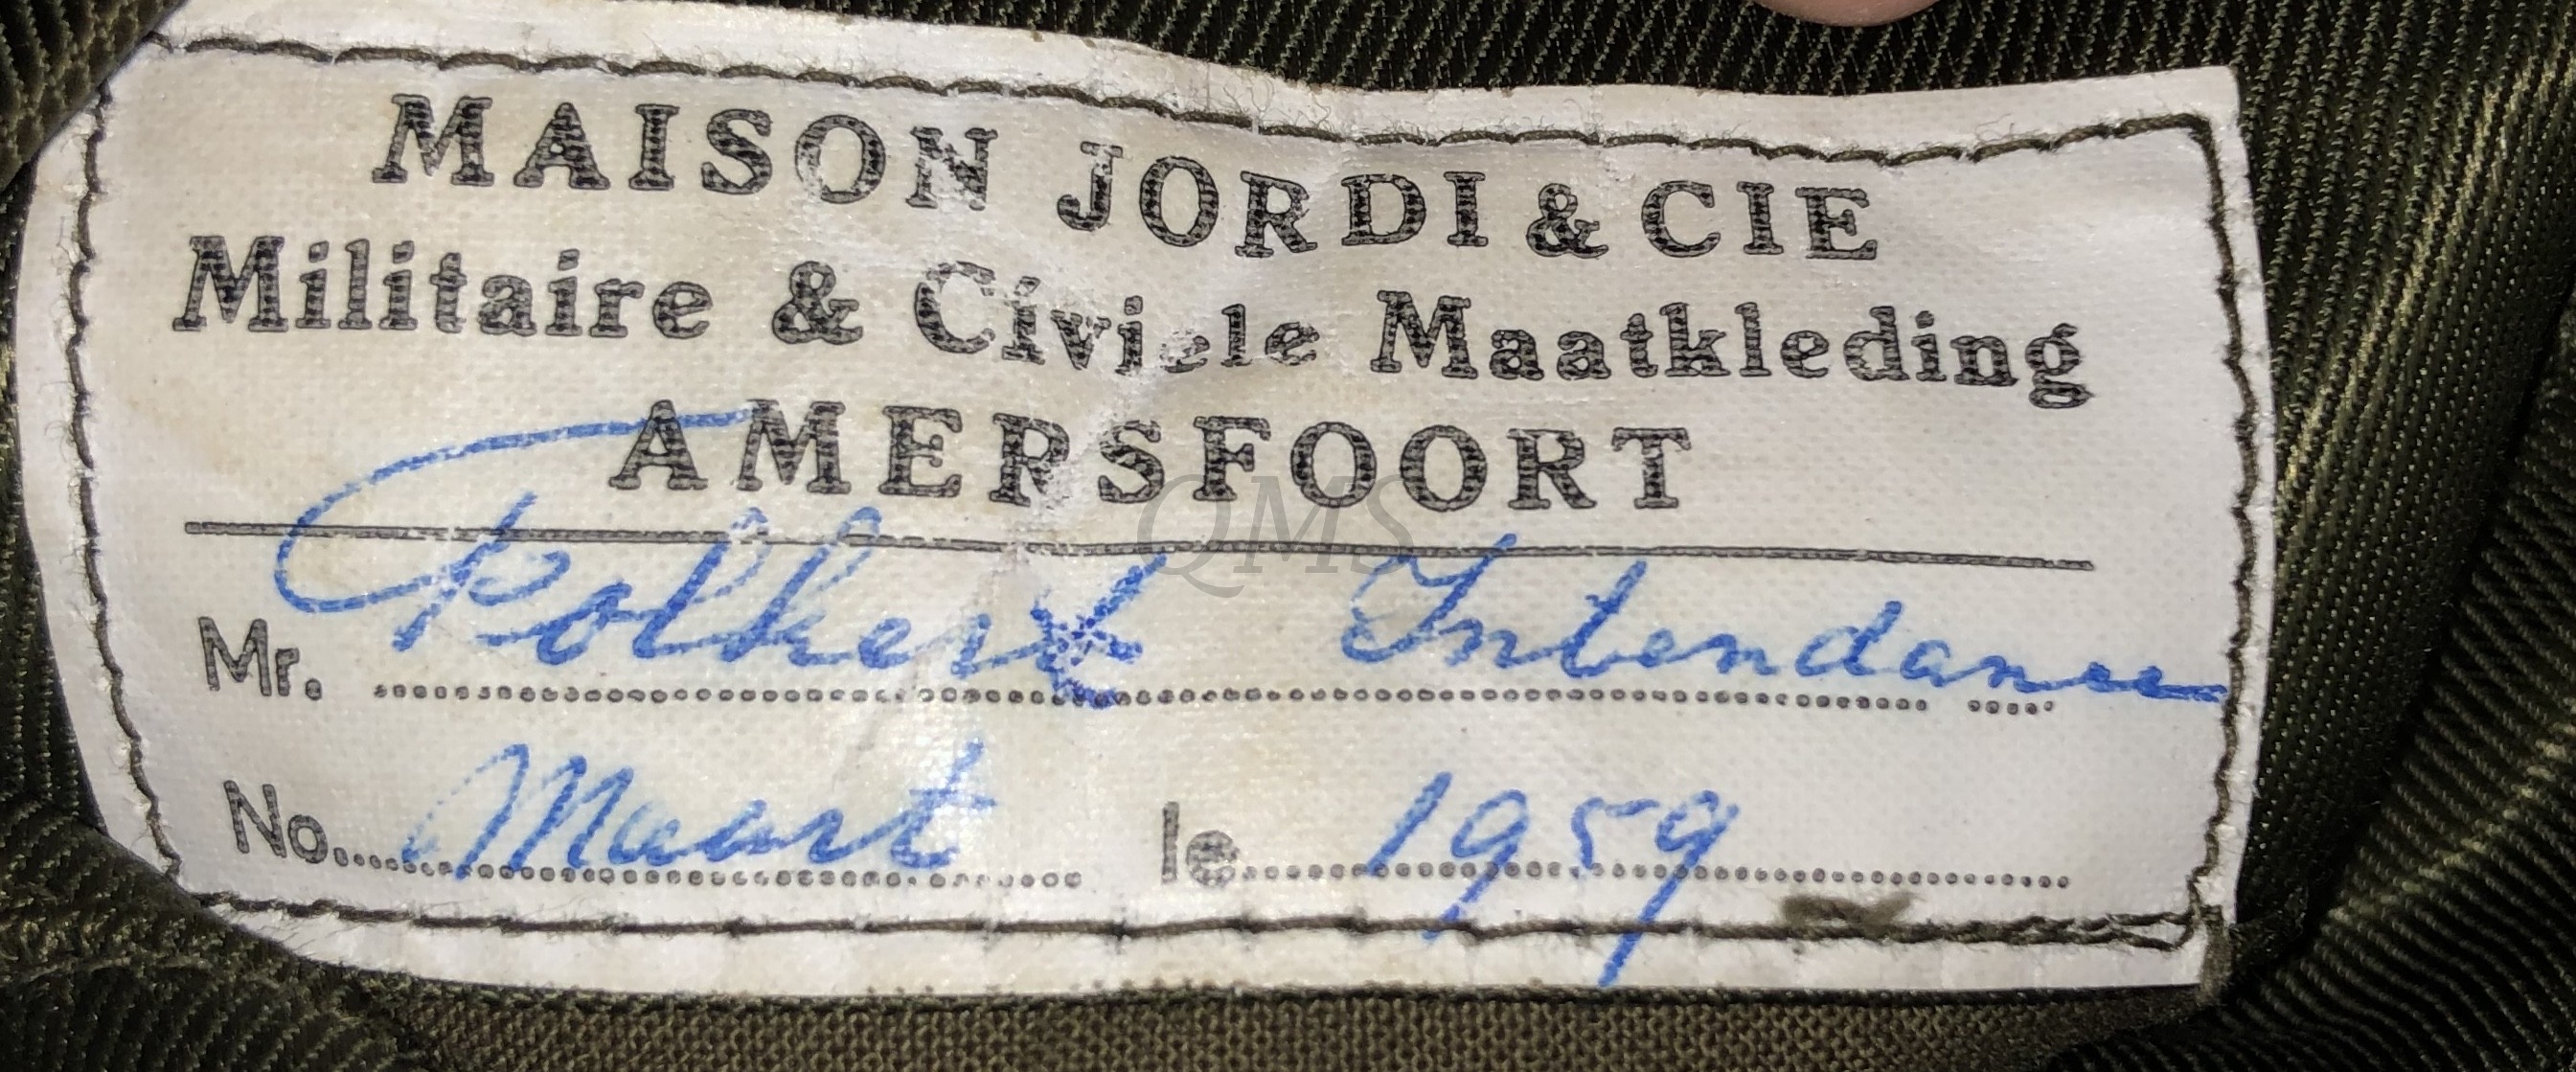 MAISON JORDI & CIE
Militaire & Civiele Maatkleding
AMERSFOORT
QMS
Mr. Intendance
No. Maart le 1959